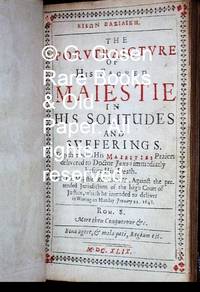 ΕΙΚΩΝ ΒΑΣΙΛΙΚΗ.
THE
POURTRAICTURE
OF
HIS SACRED
MAIESTIE
IN
HIS SOLITUDES
AND
SUFFERINGS.
His MAIESTIES Praiers
delivered to Doctor Juxon immediately
before His Death.
Against the pre-
tended Jurisdiction of the high Court of
Justice, which he intended to deliver
in Writing on Munday January 22. 1648.
ROM. 8.
More then Conquerour &c.
Bona agere, & mala pati, Regium est.
M.DC.XLIX.
© G. Gosen
Rare Books
& Old
Paper. All
rights
reserved.